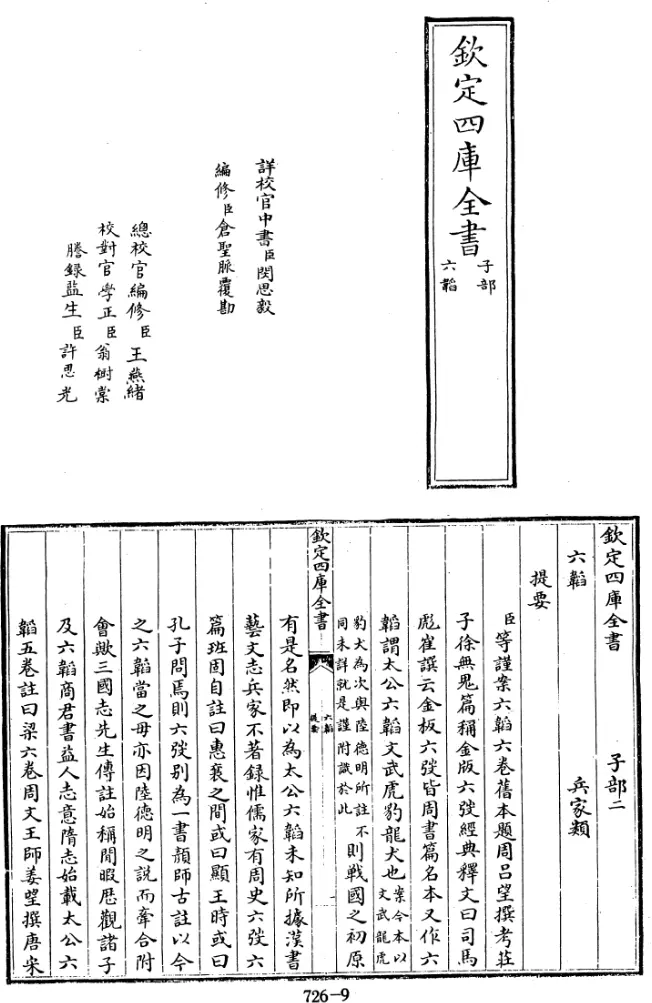 欽定四庫全書
子部
六韜
詳校官中書臣閔思毅
編修臣倉聖脈覆勘
總校官編修臣王燕緒
校對官學正臣翁樹棠
謄録監生臣許思光
欽定四庫全書 子部二
六韜 兵家類
提要
臣等謹案六韜六卷舊本題周吕望撰考莊
子徐無鬼篇稱金版六弢經典釋文曰司馬
彪崔譔云金板六弢皆周書篇名本又作六
韜謂太公六韜文武虎豹龍犬也案今本以文武龍虎
豹犬為次與陸德明所註不同未詳就是謹附識於此則戰國之初原
欽定四庫全書 六韜 提要
有是名然即以為太公六韜未知所據漢書
藝文志兵家不著録惟儒家有周史六弢六
篇班固自註曰惠襄之間或曰顯王時或曰
孔子問焉則六弢别為一書顔師古註以今
之六韜當之毋亦因陸德明之説而牽合附
會歟三國志先生傳註始稱閒暇歴觀諸子
及六韜商君書益人志意隋志始載太公六
韜五卷註曰梁六卷周文王師姜望撰唐宋
726-9